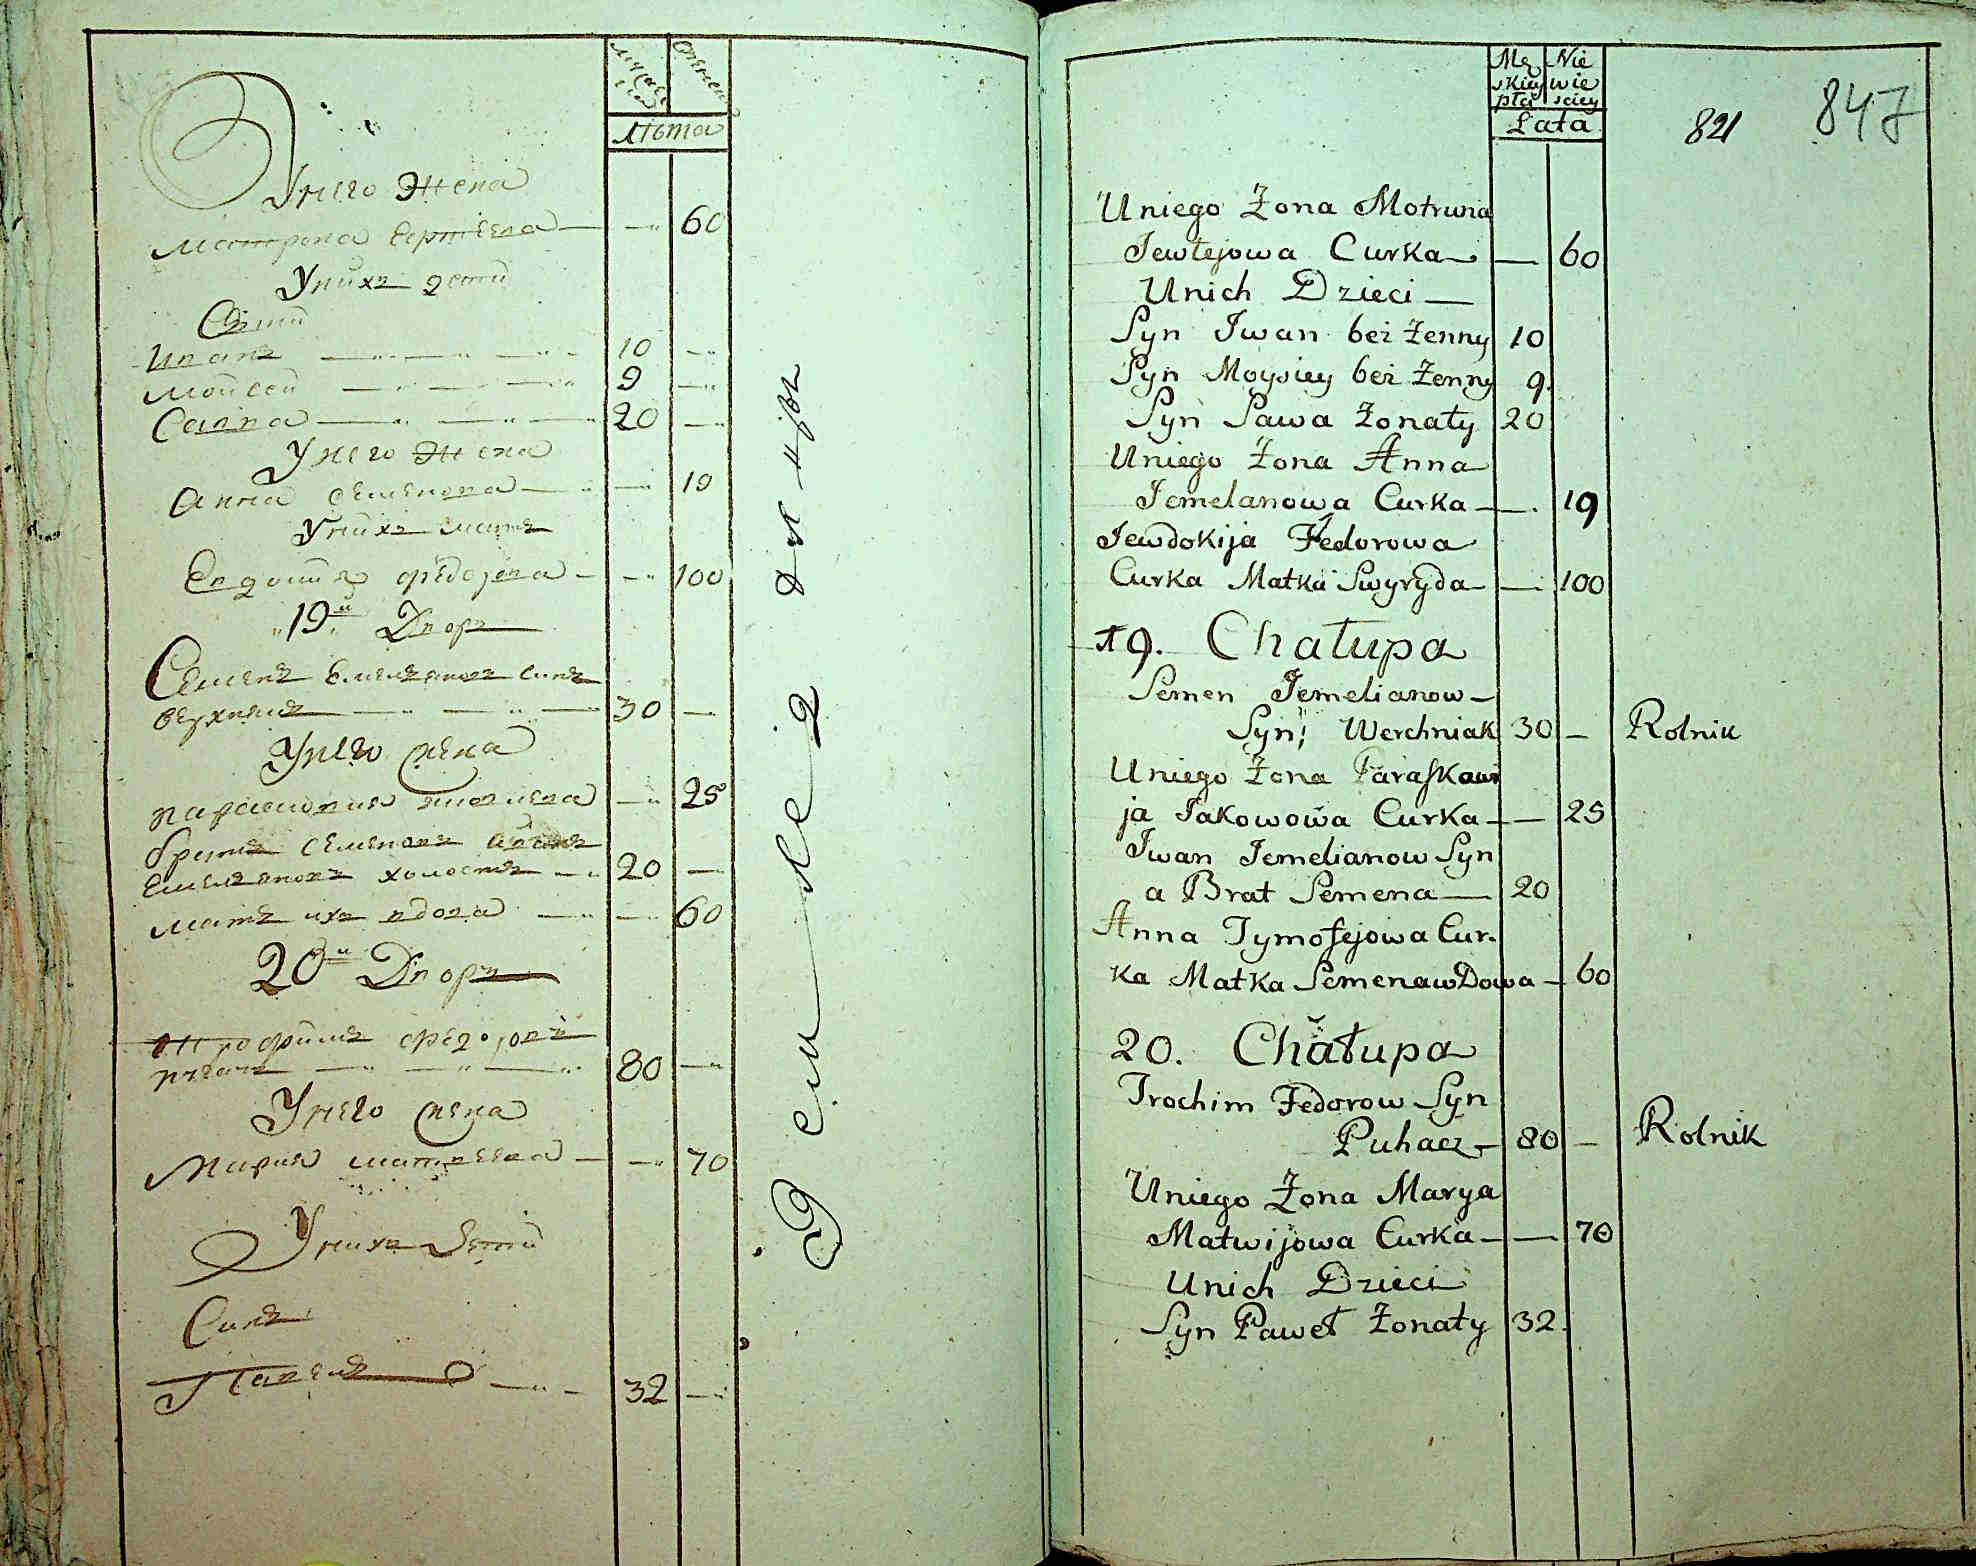 Лѣта
У него жена
Матрона — 60
У нихъ дети
Сыни
Иванъ — 10 —
Мойсей — 9 —
Савва — 20 —
У него жена
Анна Семенова — 19
У нихъ мать
Евдокия Федорова — 100
19й Дворъ
Семенъ Емельяновъ синъ
верхнякъ — 30 —
У него жена
Параскопия Яковлева — 25
братъ Семеновъ Иванъ
Емельяновъ холостъ — 20 —
мать ихъ вдова — 60
20й Дворъ
Трофимъ Федоровъ
пугачъ — 80 —
У него жена
Мария Матвеева — 70
У нихъ дети
Синъ
Павелъ — 32 —
Męskiey płci
Niewiesciey
Lata
821
847
Uniego Żona Motruna
Jewtejowa Curka — 60
Unich Dzieci —
Syn Iwan bez Żenny 10
Syn Moysiey bez Żenny 9.
Syn Sawa Żonaty 20
Uniego Żona Anna
Jemelanowa Curka — 19
Jewdokija Fedorowa
Curka Matka Swyryda — 100
19. Chałupa
Semen Jemelianow —
Syn Werchniak 30 — Rolnik
Uniego Żona Paraskawi
ja Jakowowa Curka — 25
Iwan Jemelianow Syn
a Brat Semena — 20
Anna Tymofejowa Cur.
ka Matka Semena wDowa — 60
20. Chałupa
Trochim Fedorow Syn
Puhacz — 80 — Rolnik
Uniego Żona Marya
Matwijowa Curka — 70
Unich Dzieci
Syn Paweł Żonaty 32.